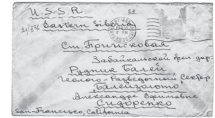 U.S.S.R.
Eastern Siberia
Ст. Приисковая
Забайкальской жел. дор.
Рудник Балей
Геолого-Разведочный Сектор
Балейзолото
Алексею
Сидоренко
San-Francisco, California